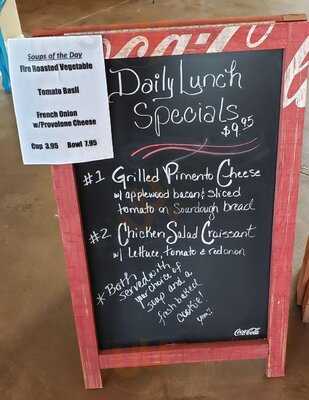 Coca-Cola
Soups of the Day
Fire Roasted Vegetable
Tomato Basil
French Onion
w/Provolone Cheese
Cup 3.95 Bowl 7.95
Daily Lunch
Specials
$9.95
#1 Grilled Pimento Cheese
w/ applewood bacon & sliced
tomato on Sourdough bread
#2 Chicken Salad Croissant
w/ Lettuce, tomato & red onion
* Both
served with
your choice of
soup and a
fresh baked
cookie!
yum!!
Coca-Cola